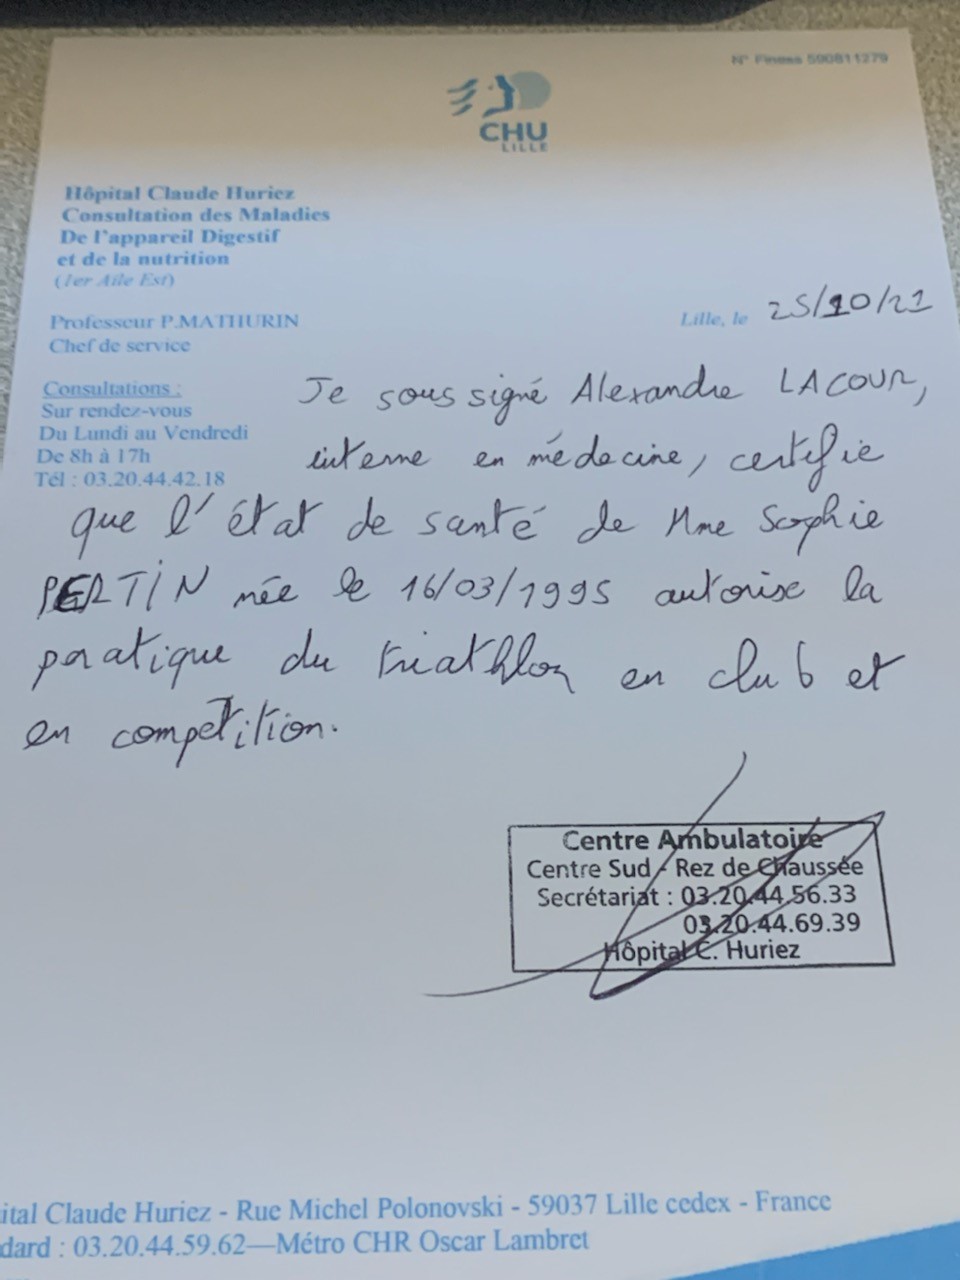 N° Finess 590811279
CHU
LILLE
Hôpital Claude Huriez
Consultation des Maladies
De l'appareil Digestif
et de la nutrition
(1er Aile Est)
Professeur P.MATHURIN
Chef de service
Lille, le 25/10/21
Consultations :
Sur rendez-vous
Du Lundi au Vendredi
De 8h à 17h
Tél : 03.20.44.42.18
Je soussigné Alexandre LACOUR,
interne en médecine, certifie
que l'état de santé de Mme Sophie
PERTIN née le 16/03/1995 autorise la
pratique du triathlon en club et
en compétition.
Centre Ambulatoire
Centre Sud - Rez de Chaussée
Secrétariat : 03.20.44.56.33
03.20.44.69.39
Hôpital C. Huriez
ital Claude Huriez - Rue Michel Polonovski - 59037 Lille cedex - France
dard : 03.20.44.59.62—Métro CHR Oscar Lambret